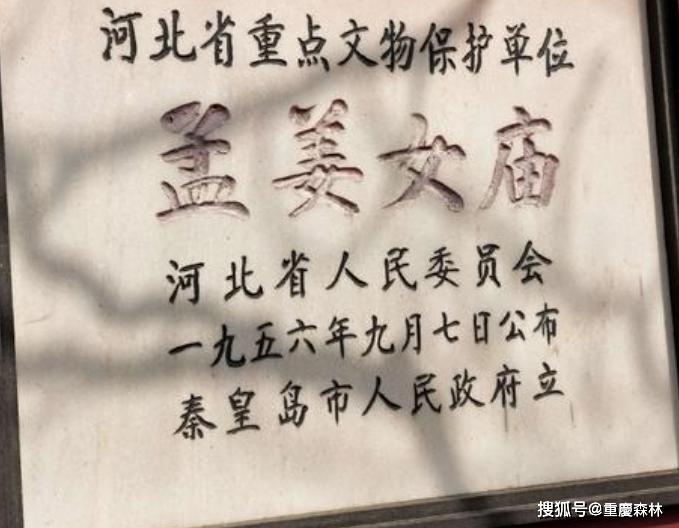 河北省重点文物保护单位
孟姜女庙
河北省人民委员会
一九五六年九月七日公布
秦皇岛市人民政府立
搜狐号@重慶森林